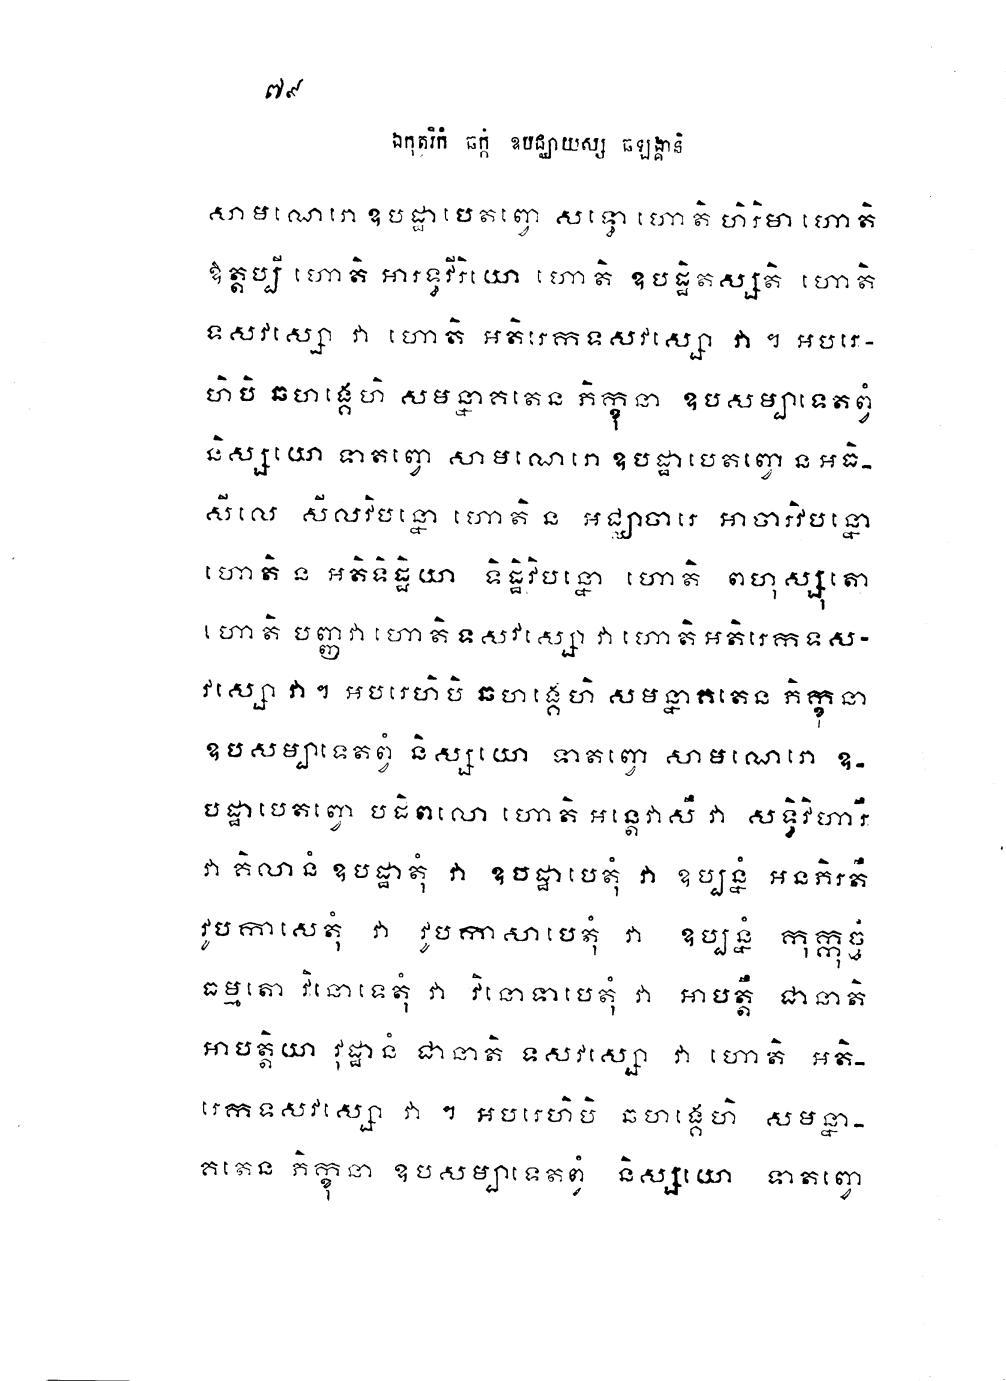 ៧៩
ឯកុត្តរិកំ ឆក្កំ ឧបជ្ឈាយស្ស ឆឡង្គានិ
សាមណេរោ ឧបដ្ឋាបេតព្វោ សទ្ធោ ហោតិ ហិរិមា ហោតិ
ឱត្តប្បី ហោតិ អារទ្ធវីរិយោ ហោតិ ឧបដ្ឋិតស្សតិ ហោតិ
ទសវស្សោ វា ហោតិ អតិរេកទសវស្សោ វា ។ អបរេ-
ហិបិ ឆហង្គេហិ សមន្នាគតេន ភិក្ខុនា ឧបសម្បាទេតព្វំ
និស្សយោ ទាតព្វោ សាមណេរោ ឧបដ្ឋាបេតព្វោ ន អធិ-
សីលេ សីលវិបន្នោ ហោតិ ន អជ្ឈាចារេ អាចារវិបន្នោ
ហោតិ ន អតិទិដ្ឋិយា ទិដ្ឋិវិបន្នោ ហោតិ ពហុស្សុតោ
ហោតិ បញ្ញវា ហោតិ ទសវស្សោ វា ហោតិ អតិរេកទស-
វស្សោ វា ។ អបរេហិបិ ឆហង្គេហិ សមន្នាគតេន ភិក្ខុនា
ឧបសម្បាទេតព្វំ និស្សយោ ទាតព្វោ សាមណេរោ ឧ-
បដ្ឋាបេតព្វោ បដិពលោ ហោតិ អន្តេវាសឹ វា សទ្ធិវិហារឹ
វា គិលានំ ឧបដ្ឋាតុំ វា ឧបដ្ឋាបេតុំ វា ឧប្បន្នំ អនភិរតឹ
វូបកាសេតុំ វា វូបកាសាបេតុំ វា ឧប្បន្នំ កុក្កុច្ចំ
ធម្មតោ វិនោទេតុំ វា វិនោទាបេតុំ វា អាបត្តឹ ជានាតិ
អាបត្តិយា វុដ្ឋានំ ជានាតិ ទសវស្សោ វា ហោតិ អតិ-
រេកទសវស្សោ វា ។ អបរេហិបិ ឆហង្គេហិ សមន្នា-
គតេន ភិក្ខុនា ឧបសម្បាទេតព្វំ និស្សយោ ទាតព្វោ